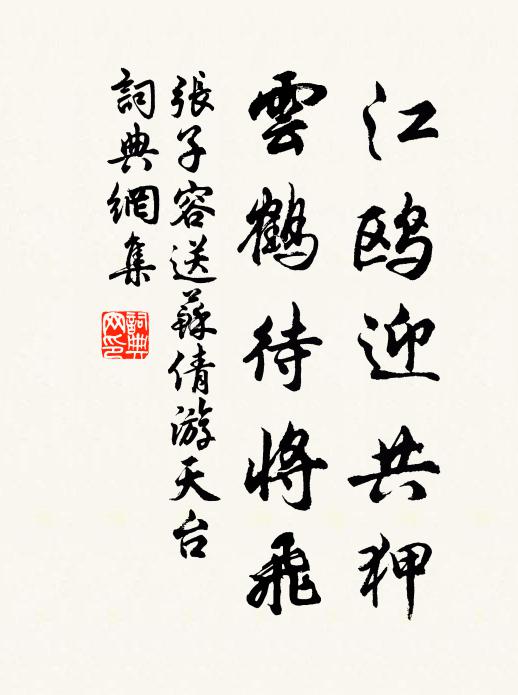 江鸥迎共狎
雲鶴待將飛
張子容送蘇倩游天台
詞典網集
詞典網印